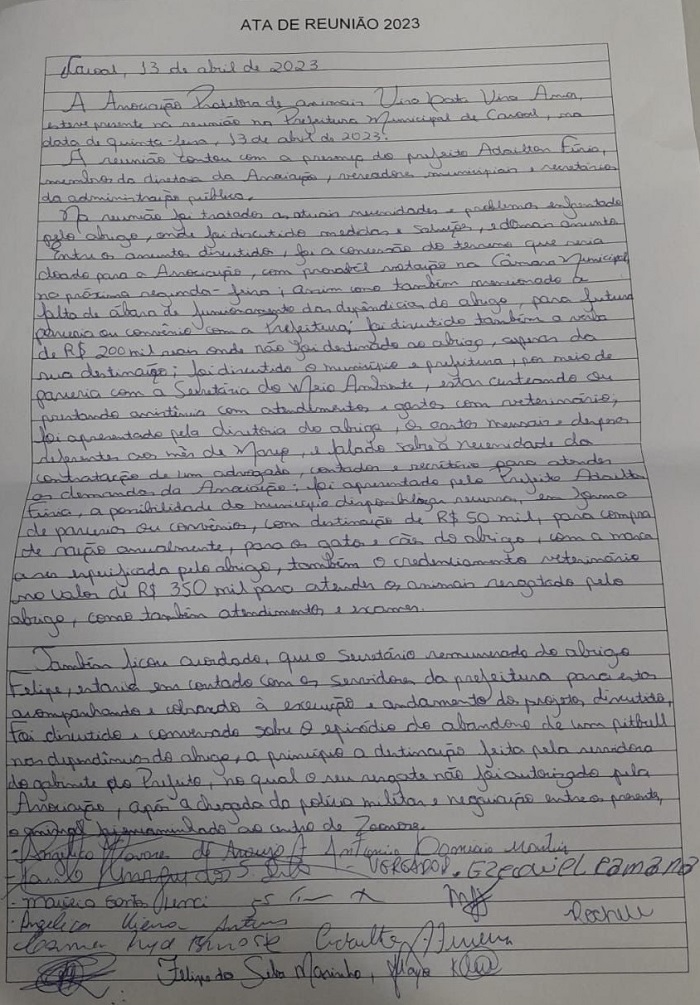 ATA DE REUNIÃO 2023
Cacoal, 13 de abril de 2023
A Associação Protetora de animais Vira Pata Vira Amor,
esteve presente na reunião na Prefeitura Municipal de Cacoal, na
data de quinta-feira, 13 de abril de 2023.
A reunião contou com a presença do prefeito Adailton Fúria,
membros da diretoria da Associação, vereadores municipais e secretários
da administração pública.
Na reunião foi tratados as atuais necessidades e problemas enfrentado
pelo abrigo, onde foi discutido medidas e soluções, e demais assuntos
Entre os assuntos discutidos, foi a concessão do terreno que seria
doado para a Associação, com provável votação na Câmara Municipal
na próxima segunda-feira; assim como também mencionado a
falta de alvará de funcionamento das dependências do abrigo, para futura
parceria ou convênio com a Prefeitura; foi discutido também a verba
de R$ 200 mil reais onde não foi destinado ao abrigo, apesar da
sua destinação; foi discutido o município e prefeitura, por meio de
parceria com a Secretária do Meio Ambiente, estar custeando ou
prestando assistência com atendimentos e gastos com veterinário,
foi apresentado pela diretoria do abrigo, os gastos mensais e despesas
referentes ao mês de Março, e falado sobre a necessidade da
contratação de um advogado, contador e secretário para atender
as demandas da Associação; foi apresentado pelo Prefeito Adailton
Fúria, a possibilidade do município disponibilizar recursos, em forma
de parcerias ou convênios, com destinação de R$ 50 mil, para compra
de ração anualmente, para os gatos e cães do abrigo, com a marca
a ser especificada pelo abrigo, também o credenciamento veterinário
no valor de R$ 350 mil para atender os animais resgatado pelo
abrigo, como também atendimentos e exames.
Também ficou acordado, que o Secretário remunerado do abrigo
Felipe, estaria em contado com os servidores da prefeitura para estar
acompanhando e cobrando à execução e andamento dos projetos discutido,
Foi discutido e conversado sobre o episódio do abandono de um pitbull
nas dependências do abrigo, a princípio a destinação feita pela servidora
do gabinete do Prefeito, no qual o seu resgate não foi autorizado pela
Associação, após a chegada da polícia militar e negociação entre os presentes,
o animal foi encaminhado ao centro de Zoonose.
Antonio Damião
- Paulo VEREADOR. Ezequiel Camara
- Marcia
- Angélica Viena
Felipe da Silva Marinho,